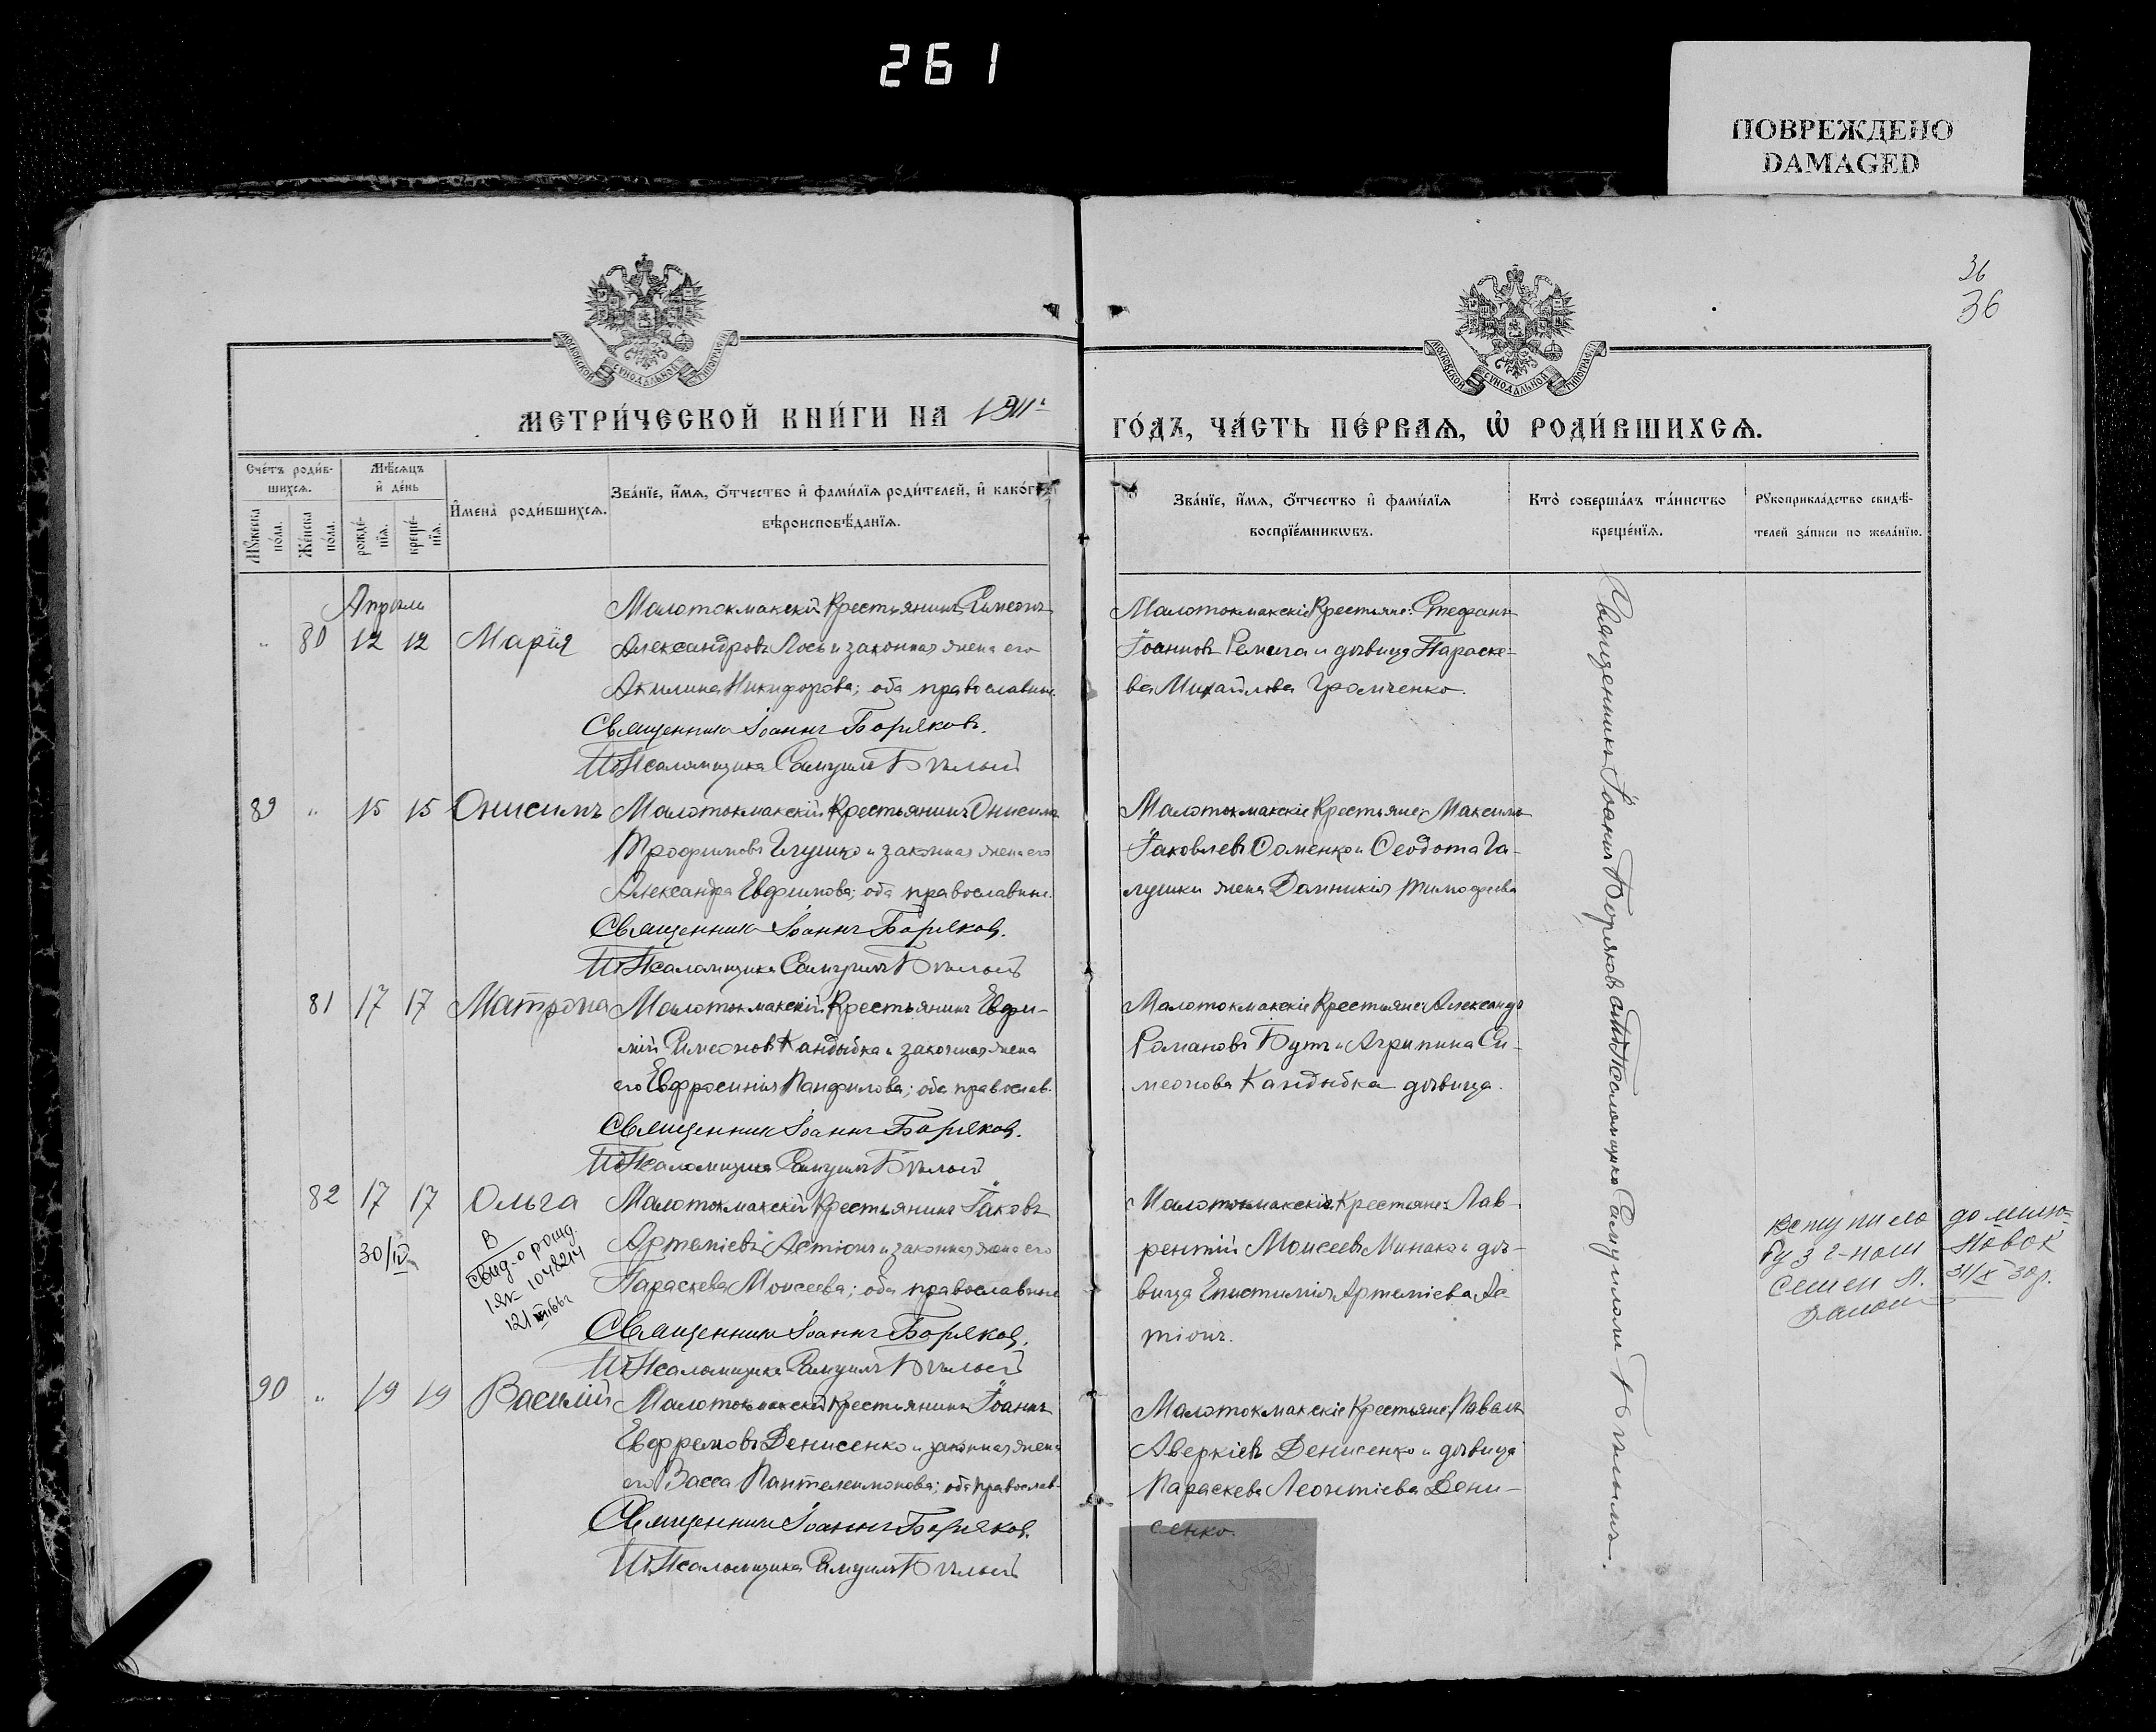 261
ПОВРЕЖДЕНО
DAMAGED
36
36
МОСКОВСКОЙ СѴНОДАЛЬНОЙ ТИПОГРАФІИ
МОСКОВСКОЙ СѴНОДАЛЬНОЙ ТИПОГРАФІИ
МЕТРИ́ЧЕСКОЙ КНИ́ГИ НА 1911 г
ГО́ДЪ, ЧА́СТЬ ПЕ́РВАѦ, Ѡ҆ РОДИ́ВШИХСѦ.
Сче́тъ роди́в-
шихсѧ.
Мꙋ́жеска по́ла.
Же́нска по́ла.
Мѣ́сѧцъ
и҆ де́нь
рожде́-
нїѧ.
креще́-
нїѧ.
И҆мена̀ роди́вшихсѧ.
Зва́нїе, и҆́мѧ, ѻ҆́тчество и҆ фами́лїѧ роди́телей, и҆ како́гѡ
вѣроисповѣ́данїѧ.
Зва́нїе, и҆́мѧ, ѻ҆́тчество и҆ фами́лїѧ
воспрїе́мникѡвъ.
Кто̀ соверша́лъ та́инство
креще́нїѧ.
Рꙋкоприкла́дство свидѣ́-
телей за́писи по жела́нїю.
Апрѣль
„ 80 12 12 Марія
Малотокмакскій Крестьянинъ Симеонъ
Александровъ Лось и законная жена его
Акилина Никифорова; оба православные.
Священникъ Іоаннъ Боряковъ.
И д Псаломщика Самуилъ Бѣлый
Малотокмакскіе Крестьяне: Стефанъ
Іоанновъ Ремига и дѣвица Параске-
ва Михайлова Громченко.
89 „ 15 15 Онисимъ
Малотокмакскій Крестьянинъ Онисимъ
Трофимовъ Глушко и законная жена его
Александра Евфимова; оба православные.
Священникъ Іоаннъ Боряковъ.
И д Псаломщика Самуилъ Бѣлый
Малотокмакскіе Крестьяне: Максимъ
Іаковлевъ Соменко и Ѳеодота Га-
лушки жена Домникія Тимофеева
81 17 17 Матрона
Малотокмакскій Крестьянинъ Евфи-
мій Симеоновъ Кандыбка и законная жена
его Евфросинія Панфилова; оба православ.
Священникъ Іоаннъ Боряковъ.
И д Псаломщика Самуилъ Бѣлый
Малотокмакскіе Крестьяне: Александръ
Романовъ Бутъ и Агрипина Си-
меонова Кандыбка дѣвица.
82 17 17 Ольга
30/IV
В
свид-о рожд.
1 ЯК 1048244
Малотокмакскій Крестьянинъ Іаковъ
Артеміевъ Астіонъ и законная жена его
Параскева Моисеева; оба православные
Священникъ Іоаннъ Боряковъ.
И д Псаломщика Самуилъ Бѣлый
Малотокмакскіе Крестьяне: Лав-
рентій Моисеевъ Минако и дѣ-
вица Епистимія Артеміева Ас-
тіонъ.
31/X 30 р.
90 „ 19 19 Василій
Малотокмакскій Крестьянинъ Іоаннъ
Евфремовъ Денисенко и законная жена
его Васса Пантелеимонова; оба православ.
Священникъ Іоаннъ Боряковъ.
И д Псаломщика Самуилъ Бѣлый
Малотокмакскіе Крестьяне: Павелъ
Аверкіевъ Денисенко и дѣвица
Параскева Леонтіева Дени-
сенко.
Священникъ Іоаннъ Боряковъ съ и д Псаломщика Самуиломъ Бѣлымъ.